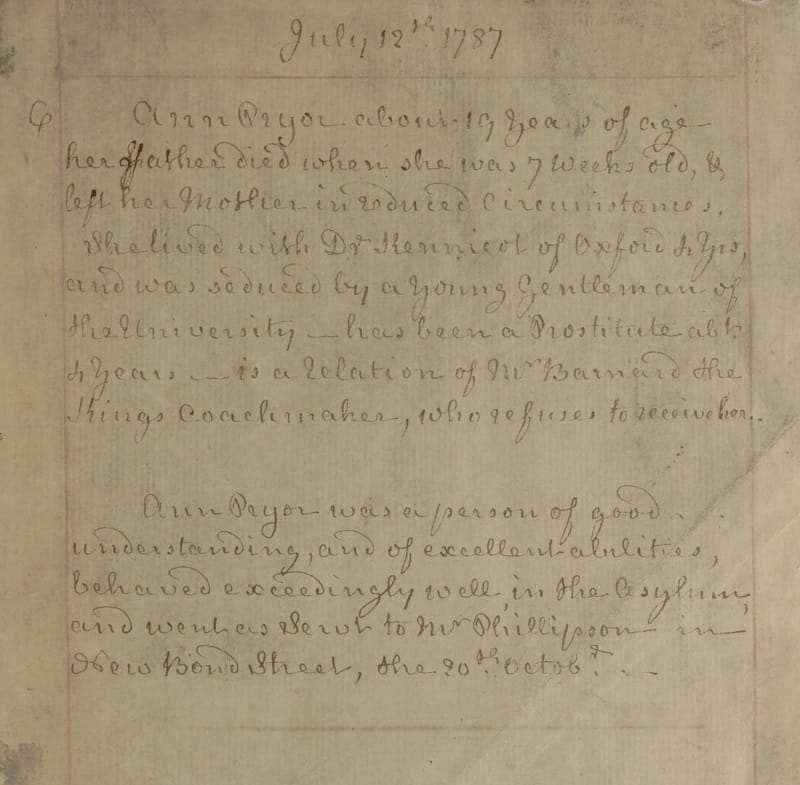 July 12th. 1787
Ann Pryor about 19 Years of age
her Father died when she was 7 Weeks old, &
left her Mother in reduced Circumstances.
She lived with Dr Kennicot of Oxford 4 Yrs,
and was seduced by a Young Gentleman of
the University — has been a Prostitute abt.
4 Years — is a relation of Mr Barnard the
Kings Coachmaker, who refuses to receive her.
Ann Pryor was a person of good
understanding, and of excellent abilities,
behaved exceedingly well, in the Asylum,
and went as Servt to Mr Phillipson in
New Bond Street, the 20th. Octobr.